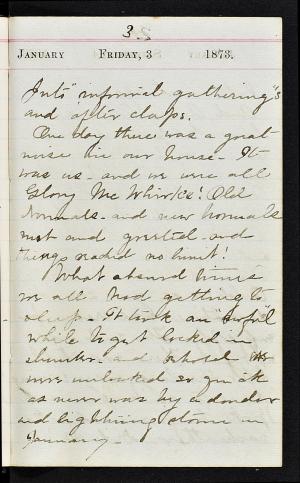 3
January Friday, 3 1873.
Into "informal gatherings"
and after claps.
One day there was a great
noise in our house - It
was us - and we were all
Glory Mc Whirks! Old
Normals - and new normals
met and greeted - and
things reached no limit!
What absurd times
we all had getting to
sleep - It took an "awful"
while to get locked in
slumber - and behold
was unlocked so quick
as never was by a
and lightning storm in
January -